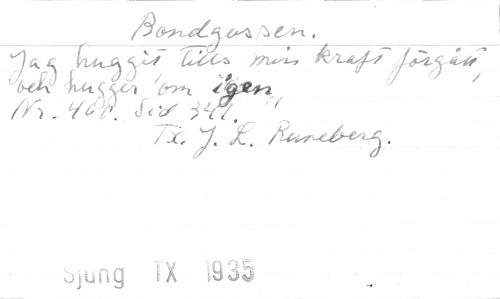 Bondgossen.
Jag huggit tills min kraft förgått,
och hugger om igen,
Nr. 400. Sid 341.
Tx. J. L. Runeberg.
Sjung TX 1935